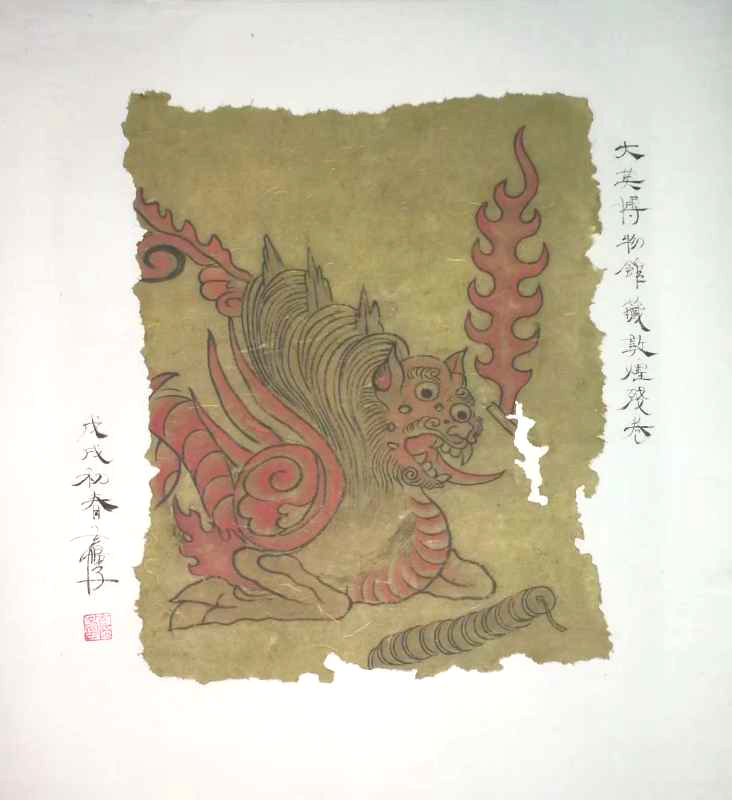 大英博物館藏敦煌殘卷
戊戌初春